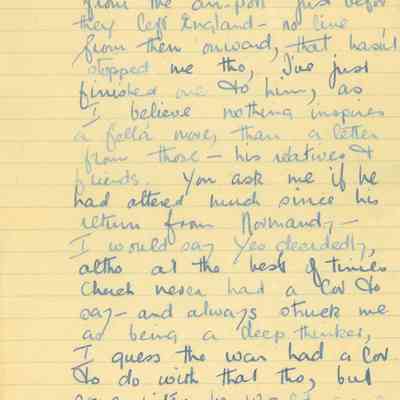 from the air-port just before
they left England - no line
from then onward, that hasn't
stopped me tho, I've just
finished one to him, as
I believe nothing inspires
a fella more, than a letter
from those - his relatives &
friends. You ask me if he
had altered much since his
return from Normandy -
I would say Yes decidedly,
altho at the best of times
Chuck never had a lot to
say - and always struck me
as being a deep thinker,
I guess the war had a lot
to do with that tho, but